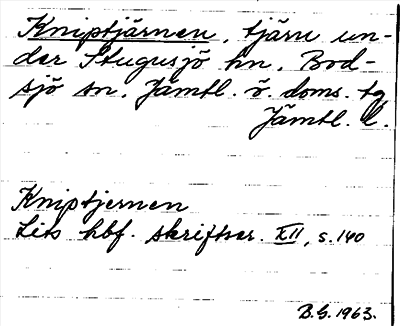 Kniptjärnen, tjärn un-
der Stugusjö hn, Bod-
sjö sn, Jämtl. ö. doms. tg,
Jämtl. l.
Kniptjernen
Lits hbf. skriftser. XII, s. 140
B.G. 1963.